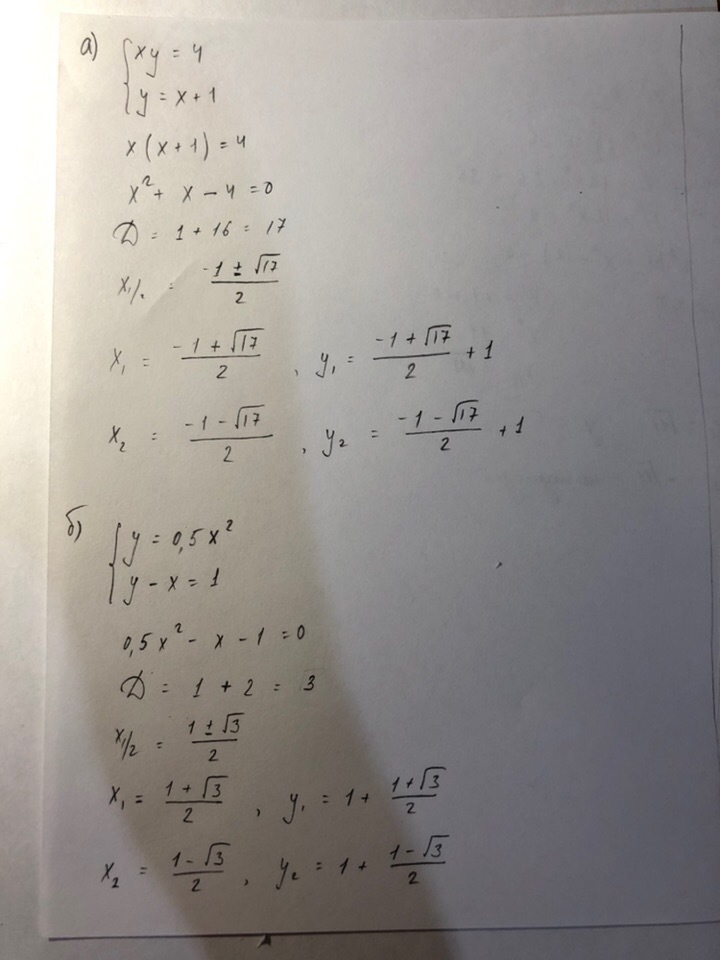 а) { xy = 4
y = x + 1
x(x + 1) = 4
x² + x - 4 = 0
D = 1 + 16 = 17
x₁/₂ = (-1 ± √17)/2
x₁ = (-1 + √17)/2 , y₁ = (-1 + √17)/2 + 1
x₂ = (-1 - √17)/2 , y₂ = (-1 - √17)/2 + 1
б) { y = 0,5x²
y - x = 1
0,5x² - x - 1 = 0
D = 1 + 2 = 3
x₁/₂ = (1 ± √3)/2
x₁ = (1 + √3)/2 , y₁ = 1 + (1 + √3)/2
x₂ = (1 - √3)/2 , y₂ = 1 + (1 - √3)/2